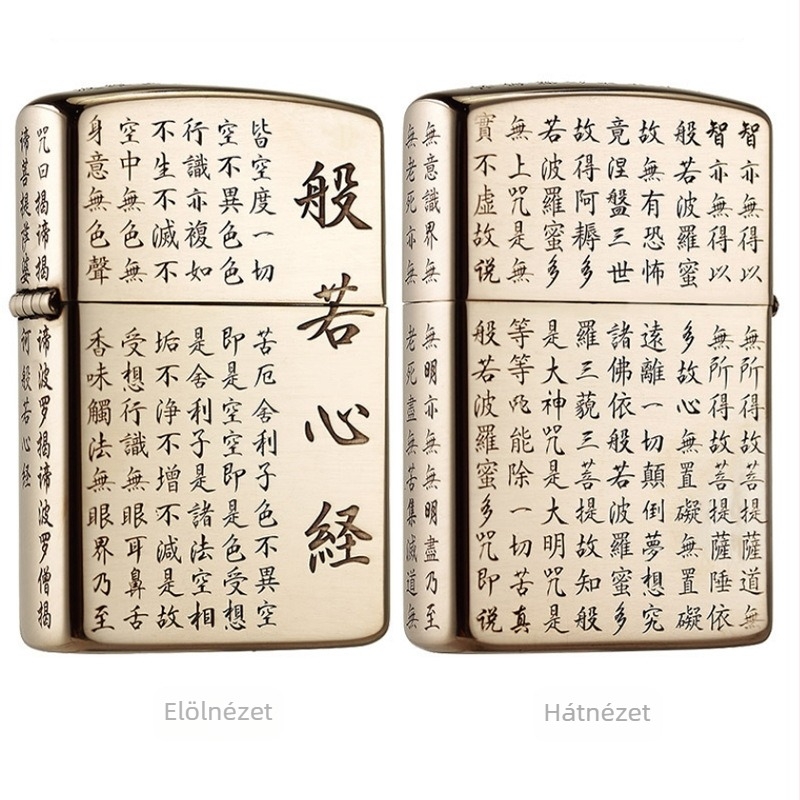 般若心経
皆空度一切苦厄舍利子色不異空
空不異色色即是空空即是色受想
行識亦複如是舍利子是諸法空相
不生不滅不垢不浄不增不減是故
空中無色無受想行識無眼耳鼻舌
身意無色聲香味觸法無眼界乃至
咒曰揭諦揭諦波罗揭諦波罗僧揭
諦菩提萨婆何般若心经
智亦無得以無所得故菩提薩道無
智亦無得以無所得故菩提薩埵依
般若波羅蜜多故心無置礙無置礙
故無有恐怖遠離一切顛倒夢想究
竟涅盤三世諸佛依般若波羅蜜多
故得阿耨多羅三藐三菩提故知般
若波羅蜜多是大神咒是大明咒是
無上咒是無等等咒能除一切苦真
實不虛故说般若波羅蜜多咒即说
無意識界無無明亦無無明盡乃至
無老死亦無老死盡無苦集滅道無
Elölnézet
Hátnézet